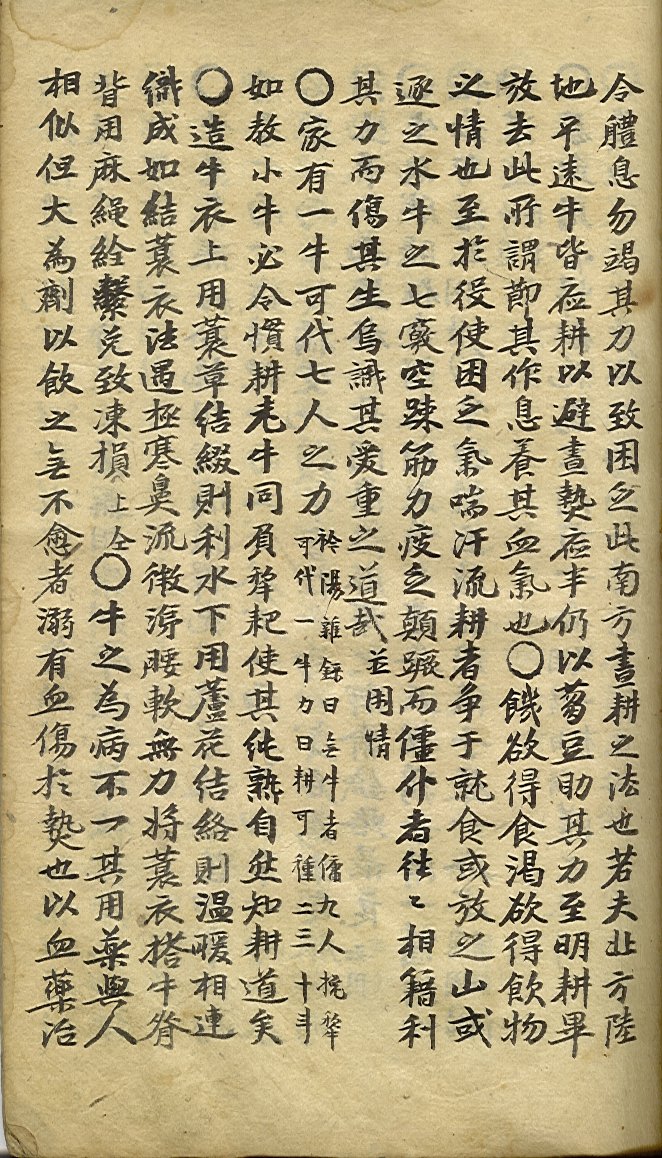 令體息勿竭其力以致困乏此南方晝耕之法也若夫北方陸
地平遠牛皆夜耕以避晝熱夜半仍以蒭豆助其力至明耕畢
放去此所謂節其作息養其血氣也○饑欲得食渴欲得飮物
之情也至於役使困乏氣喘汗流耕者争于就食或放之山或
逐之水牛之七竅空疎筋力疲乏顛蹶而僵仆者徃〻相籍利
其力而傷其生烏識其爱重之道㢤並困情
○家有一牛可代七人之力衿陽雜録曰無牛者傭九人挽犂
可代一牛力日耕可種二三十斗
如敎小牛必令慣耕老牛同負犂耙使其純熟自然知耕道矣
○造牛衣上用蓑草結綴則利水下用蘆花结絡則温暖相連
織成如結蓑衣法遇極寒鼻流微涕腰軟無力将蓑衣搭牛脊
背用麻繩絟繫免致凍損上仝○牛之為病不一其用藥與人
相似但大為劑以飮之無不愈者溺有血傷於熱也以血藥治